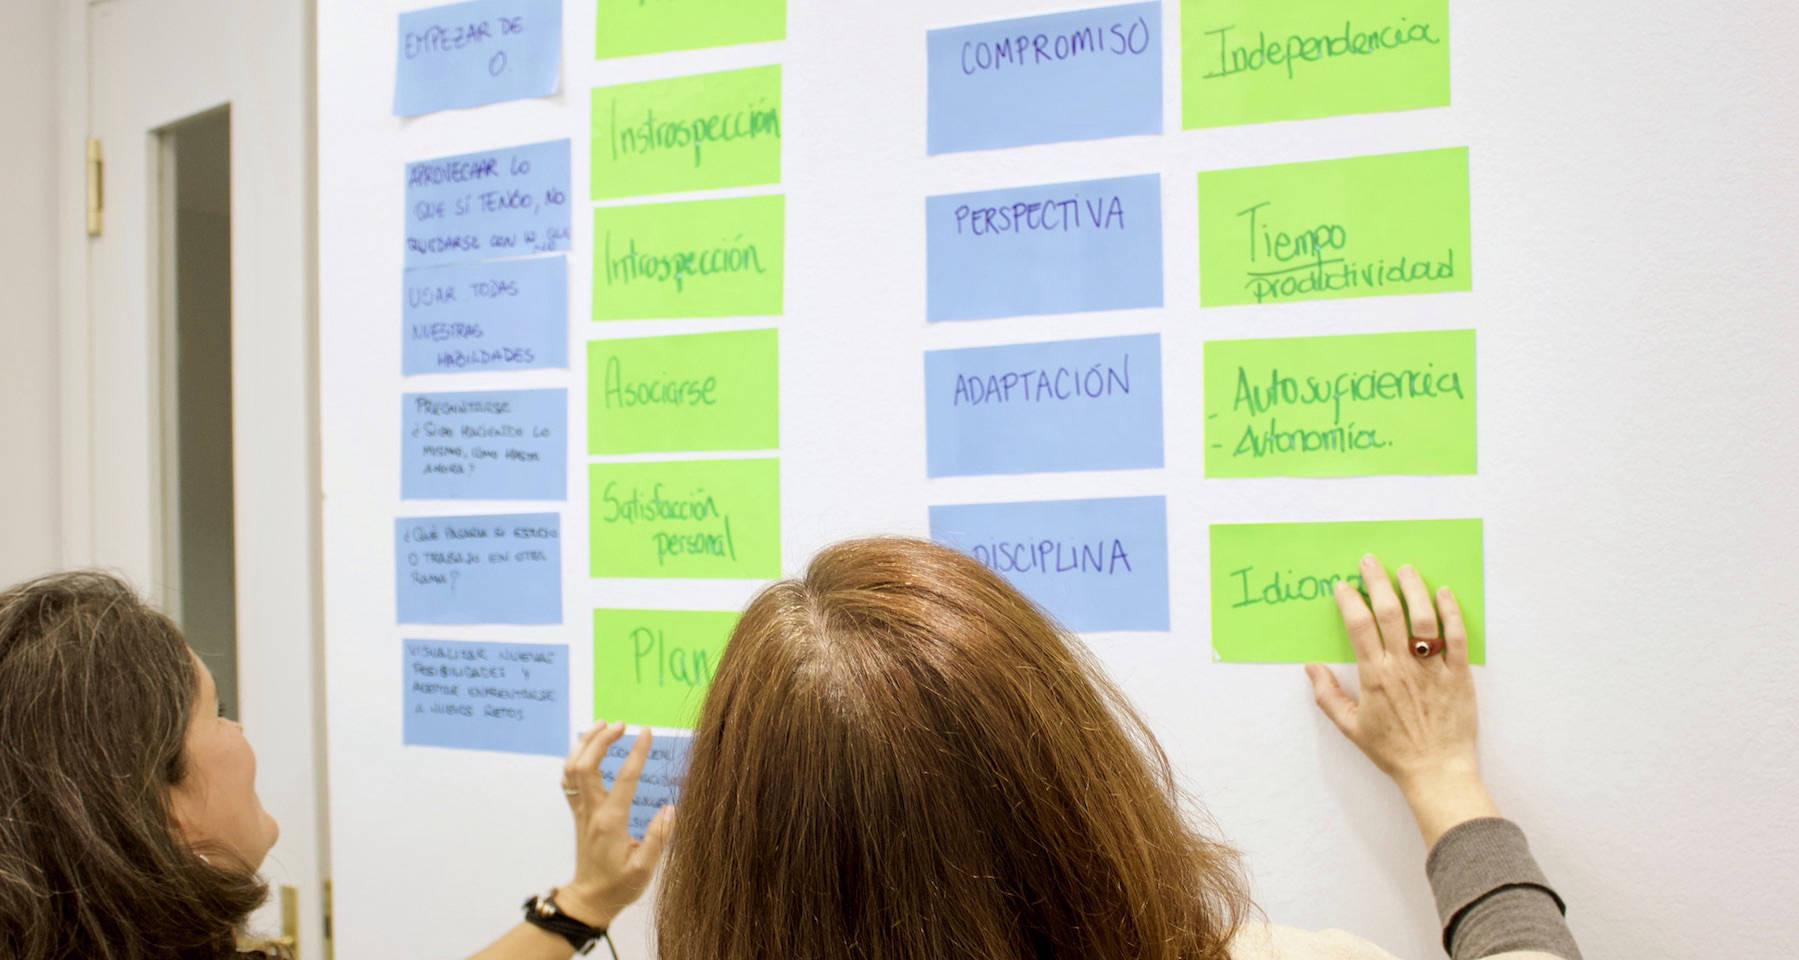 EMPEZAR DE
0.
APROVECHAR LO
QUE SÍ TENGO, NO
QUEDARSE CON LO QUE
NO
USAR TODAS
NUESTRAS
HABILDADES
PREGUNTARSE
¿SIGO HACIENDO LO
MISMO, COMO HASTA
AHORA?
¿QUÉ PASARIA SI ESTUDIO
O TRABAJO EN OTRA
RAMA?
VISUALIZAR NUEVAS
POSIBILIDADES Y
ACEPTAR ENFRENTARSE
A NUEVOS RETOS
Instrospección
Introspección
Asociarse
Satisfacción
personal
Plan
COMPROMISO
PERSPECTIVA
ADAPTACIÓN
DISCIPLINA
Independencia
Tiempo
productividad
- Autosuficiencia
- Autonomía.
Idioma